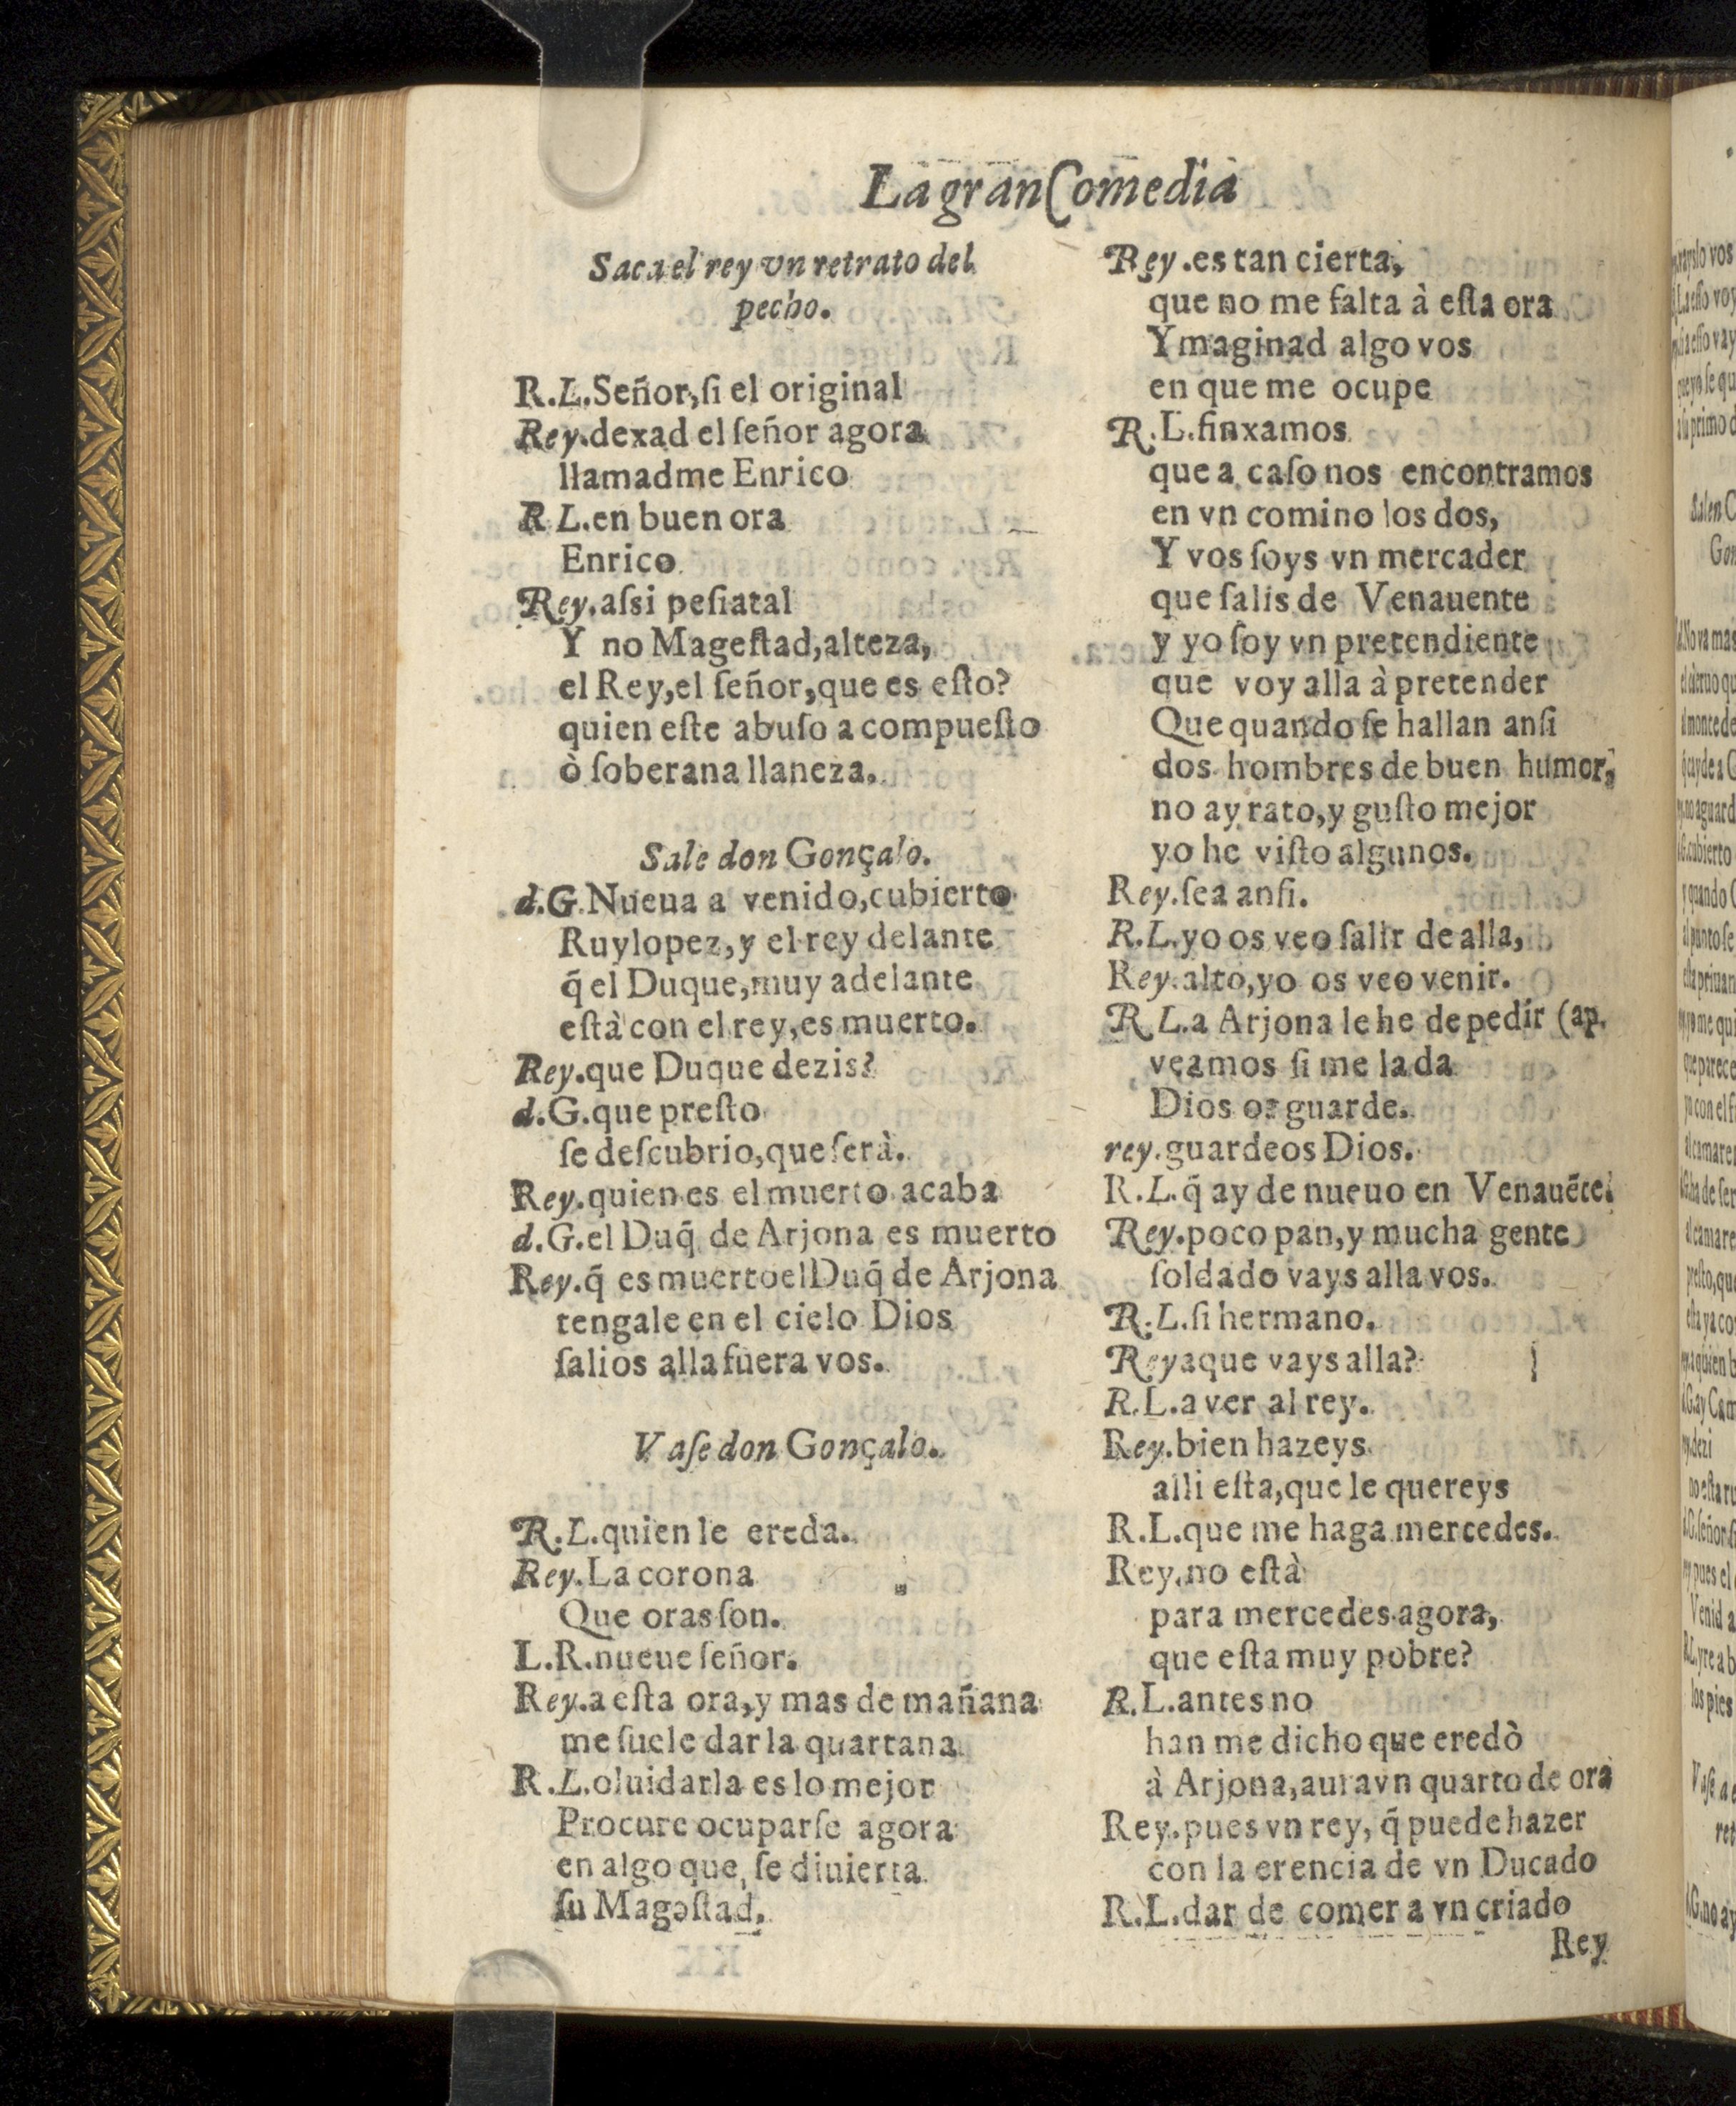 La gran Comedia
Saca el rey vn retrato del
pecho.
R.L.Señor,ſi el original
Rey.dexad el ſeñor agora
llamadme Enrico
R L.en buen ora
Enrico
Rey.aſsi peſiatal
Y no Mageſtad,alteza,
el Rey,el ſeñor,que es eſto?
quien eſte abuſo a compueſto
ò ſoberana llaneza.
Sale don Gonçalo.
d.G.Nueua a venido,cubierto
Ruylopez,y el rey delante
q̃ el Duque,muy adelante
eſtà con el rey,es muerto.
Rey.que Duque dezis?
d.G.que preſto
ſe deſcubrio,que ſerà.
Rey.quien es el muerto acaba
d.G.el Duq̃ de Arjona es muerto
Rey.q̃ es muerto el Duq̃ de Arjona
tengale en el cielo Dios
ſalios alla fuera vos.
Vaſe don Gonçalo.
R.L.quien le ereda.
Rey.La corona
Que oras ſon.
L.R.nueue ſeñor.
Rey.a eſta ora,y mas de mañana
me ſuele dar la quartana
R.L.oluidarla es lo mejor
Procure ocuparſe agora
en algo que ſe diuierta
ſu Magəſtad.
Rey.es tan cierta,
que no me falta à eſta ora
Ymaginad algo vos
en que me ocupe
R.L.finxamos
que a caſo nos encontramos
en vn comino los dos,
Y vos ſoys vn mercader
que ſalis de Venauente
y yo ſoy vn pretendiente
que voy alla à pretender
Que quando ſe hallan anſi
dos hombres de buen humor,
no ay rato,y guſto mejor
yo he viſto algunos.
Rey.ſea anſi.
R.L.yo os veo ſalir de alla,
Rey.alto,yo os veo venir.
R L.a Arjona le he de pedir (ap.
veamos ſi me la da
Dios os guarde.
rey.guardeos Dios.
R.L.q̃ ay de nueuo en Venauẽte.
Rey.poco pan,y mucha gente
ſoldado vays alla vos.
R.L.ſi hermano.
Rey aque vays alla?
R.L.a ver al rey.
Rey.bien hazeys
alli eſta,que le quereys
R.L.que me haga mercedes.
Rey.no eſtà
para mercedes agora,
que eſta muy pobre?
R.L.antes no
han me dicho que eredò
à Arjona,aura vn quarto de ora
Rey.pues vn rey, q̃ puede hazer
con la erencia de vn Ducado
R.L.dar de comer a vn criado
Rey